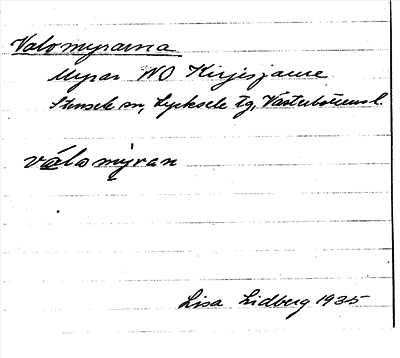 Valomyrarna
Myrar NO Kirjesjaure
Stensele sn, Lycksele tg, Västerbottens l.
válomỳran
Lisa Lidberg 1935